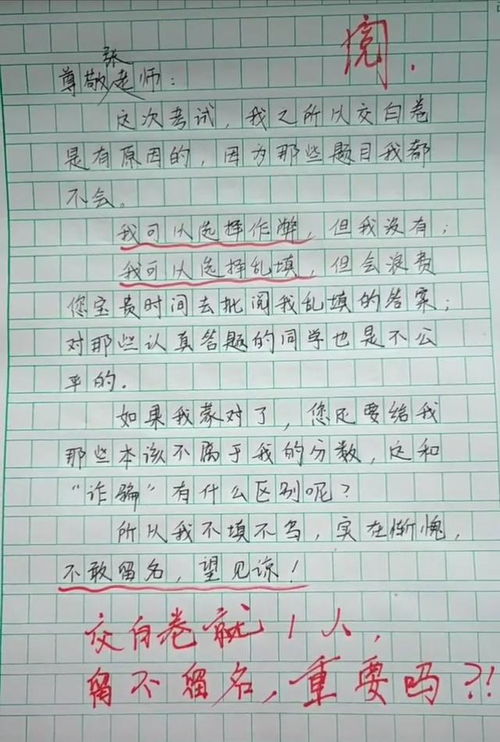 阅.
尊敬张老师：
这次考试，我之所以交白卷
是有原因的，因为那些题目我都
不会。
我可以选择作弊，但我没有；
我可以选择乱填，但会浪费
您宝贵时间去批阅我乱填的答案；
对那些认真答题的同学也是不公
平的.
如果我蒙对了，您还要给我
那些本该不属于我的分数，这和
“诈骗”有什么区别呢？
所以我不填不写，实在惭愧，
不敢留名，望见谅！
交白卷就1人，
留不留名，重要吗？！